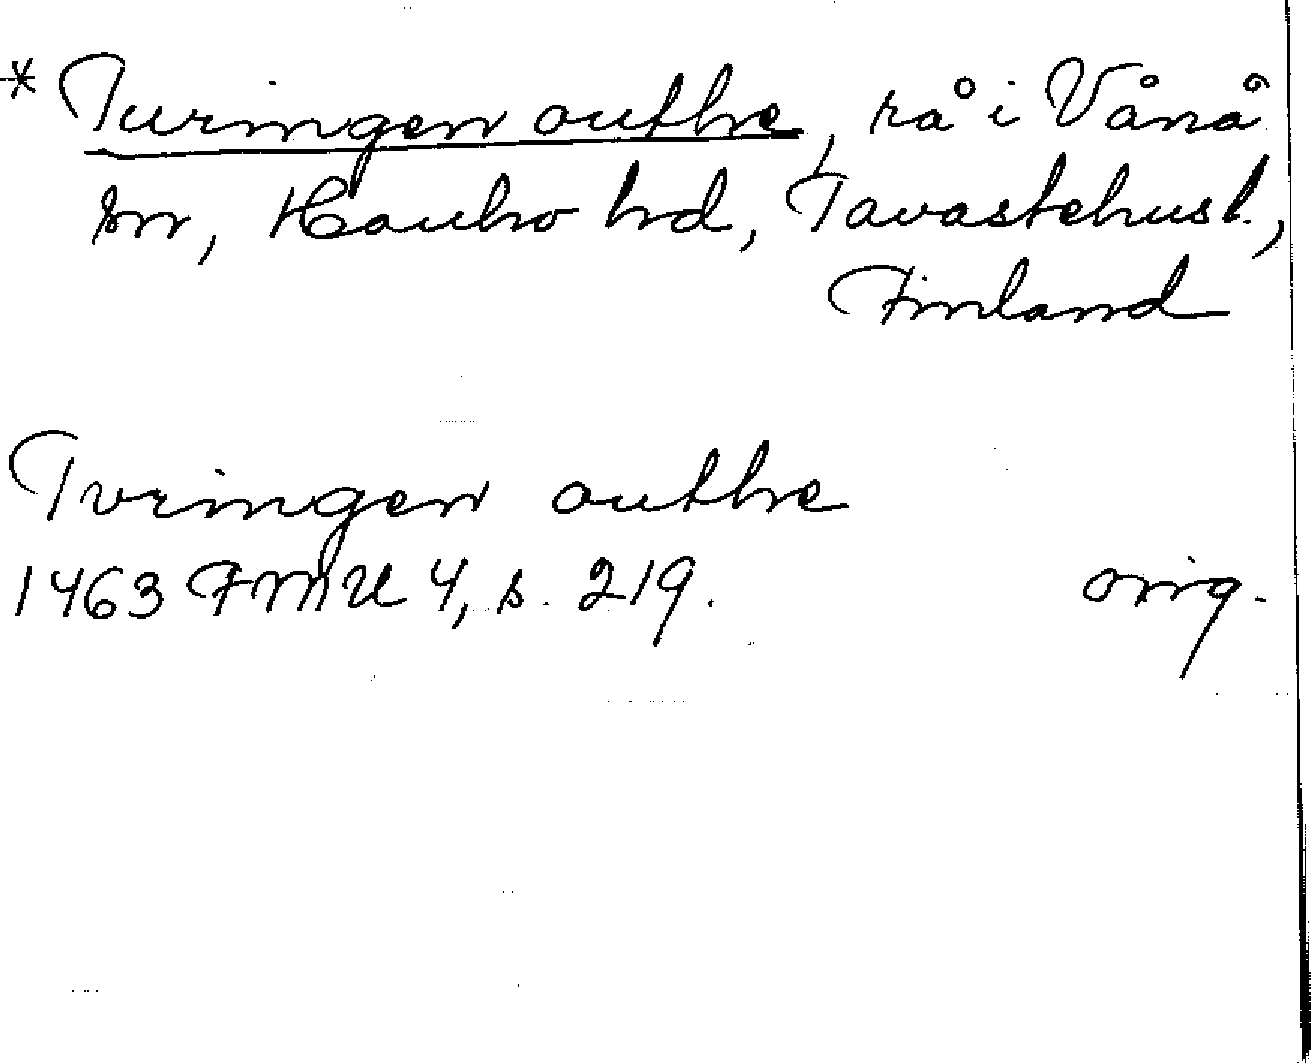 * Turingen outhe, rå i Vånå
sn, Hauho hd, Tavastehusl.,
Finland
Tvringen outhe
1463 FMU 4, s. 219. orig.